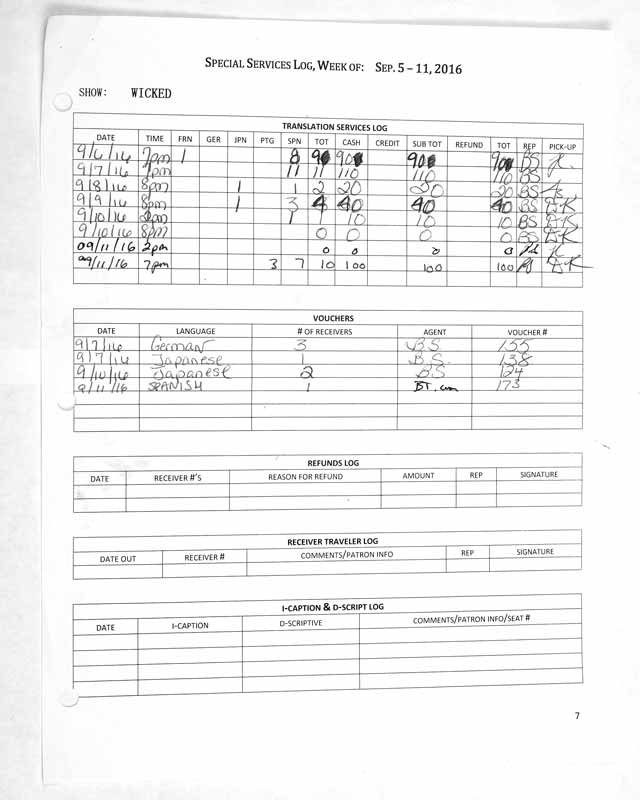 SPECIAL SERVICES LOG, WEEK OF: SEP. 5 – 11, 2016
SHOW: WICKED
TRANSLATION SERVICES LOG
DATE TIME FRN GER JPN PTG SPN TOT CASH CREDIT SUB TOT REFUND TOT REP PICK-UP
9/6/16 7pm 1 8 9 90 90 90 BS
9/7/16 7pm 11 11 110 110 110 BS
9/8/16 8pm 1 1 2 20 20 20 BS
9/9/16 8pm 1 3 4 40 40 40 BS
9/10/16 2pm 1 1 10 10 10 BS
9/10/16 8pm 0 0 0 0 BS
09/11/16 2pm 0 0 0 0
09/11/16 7pm 3 7 10 100 100 100
VOUCHERS
DATE LANGUAGE # OF RECEIVERS AGENT VOUCHER #
9/7/16 German 3 B.S 155
9/7/16 Japanese 1 B.S. 138
9/10/16 Japanese 2 B.S 124
9/11/16 SPANISH 1 BT. 173
REFUNDS LOG
DATE RECEIVER #'S REASON FOR REFUND AMOUNT REP SIGNATURE
RECEIVER TRAVELER LOG
DATE OUT RECEIVER # COMMENTS/PATRON INFO REP SIGNATURE
I-CAPTION & D-SCRIPT LOG
DATE I-CAPTION D-SCRIPTIVE COMMENTS/PATRON INFO/SEAT #
7